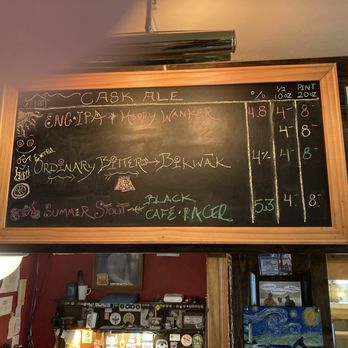 CASK ALE % ½ 10 OZ PINT 20 OZ
ENG•IPA → HOPPY WANKER 4.8 4- 8-
4- 8-
EXTRA
ORDINARY BITTER → BIKWAK 4% 4- 8-
SUMMER STOUT → BLACK CAFÉ•RACER 5.3 4- 8-